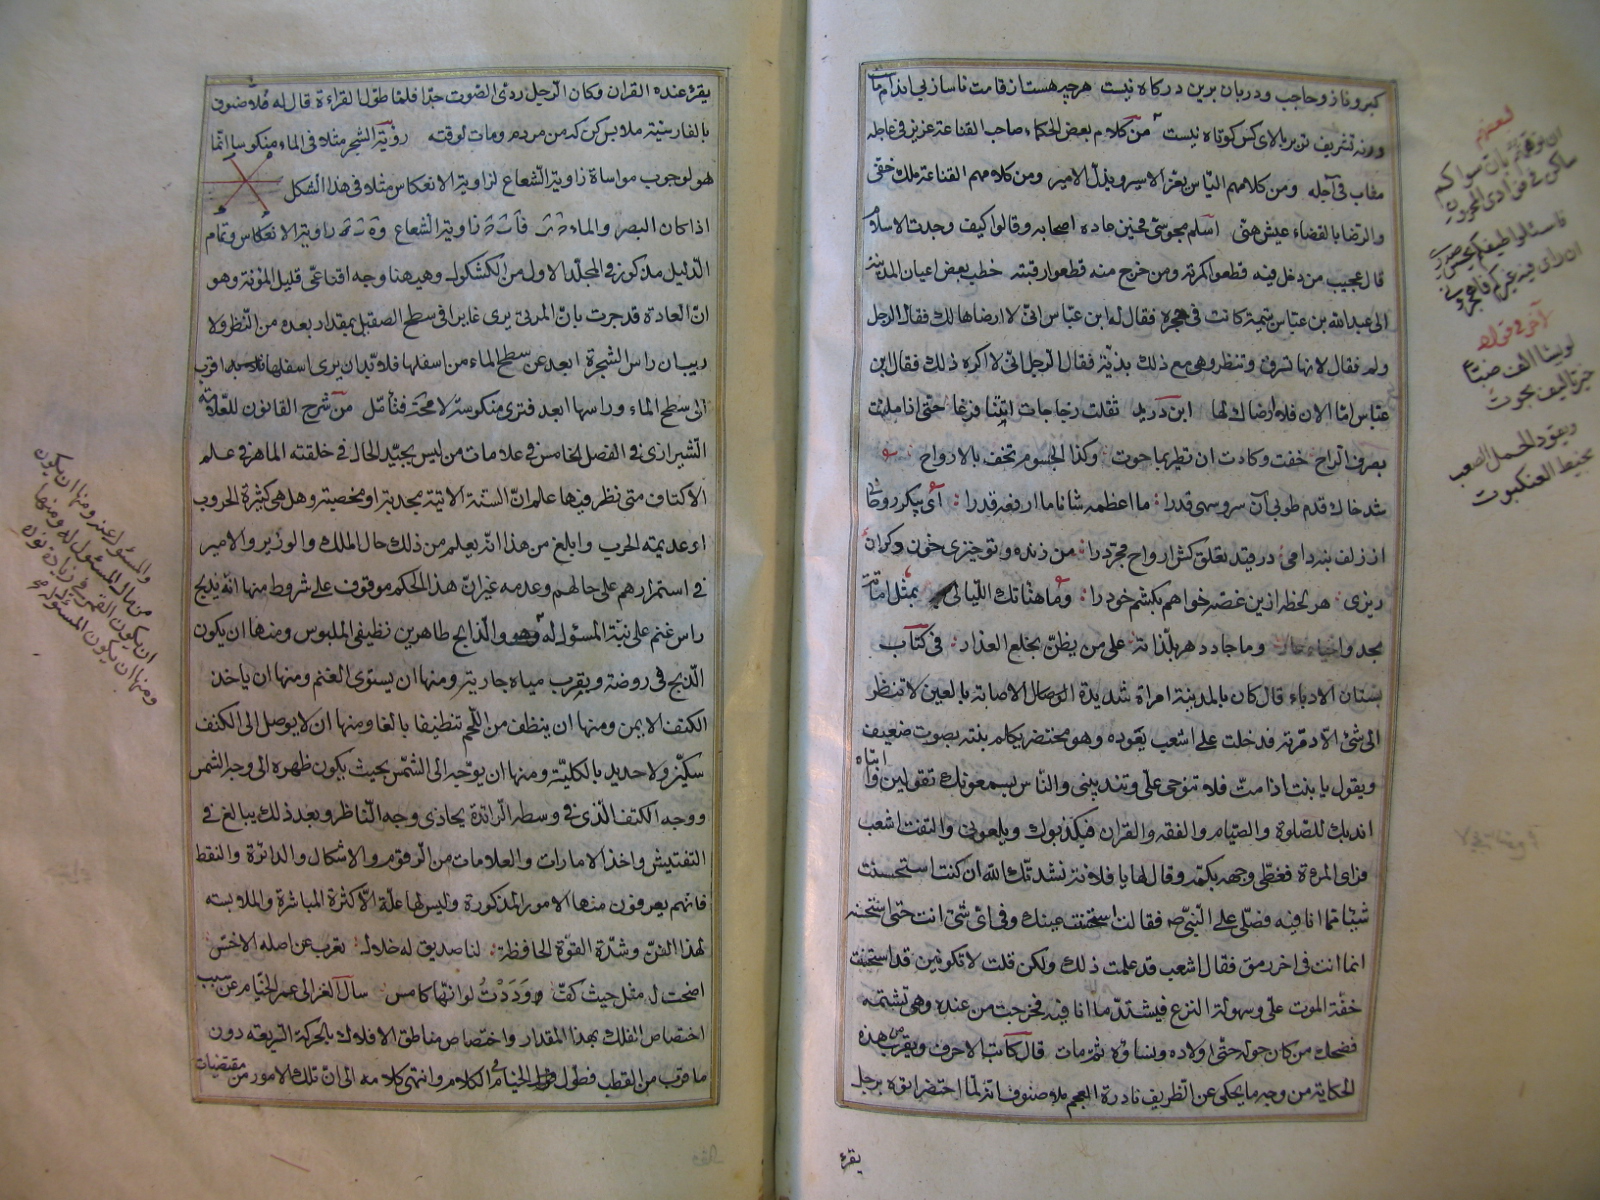 كبر و ناز و حاجب و دربان برين درگاه نيست هر چه هست از قامت ناساز بی اندام ماست
ورنه تشريف تو بر بالای کس کوتاه نيست من كلام بعض الحكماء صاحب القناعة عزيز في عاجله
مثاب في آجله ومن كلامهم الياس يعز الاسير ويذل الامير ومن كلامهم القناعة ملك خفي
والرضا بالقضاء عيش هني اسلم مجوسي فحين عاده اصحابه وقالوا كيف وجدت الاسلام
قال عجيب من دخل فيه قطعوا كمرته ومن خرج منه قطعوا رقبته خطب بعض اعيان المدينة
الى عبد الله بن عباس يتيمة كانت في حجره فقال له ابن عباس اني لا ارضاها لك فقال الرجل
ولم فقال لانها تشرف وتنظر وهي مع ذلك بذية فقال الرجل اني لا اكره ذلك فقال ابن
عباس اما الان فلا ارضاك لها ابن دريد ثقلت زجاجات اتتنا فرغا حتى اذا ملئت
بصرف الراح خفت وكادت ان تطير بما حوت وكذا الجسوم تخف بالارواح
شد خاك قدم طوبى آن سرو سهى قد را ما اعظمه شانا ما ارفعه قدرا ای پيكر روحانی
از زلف بنه دامی در قيد تعلق كش ارواح مجرد را من زنده و تو خيزی خون دكران
ريزی هر لحظه ازين غصه خواهم بكشم خود را وما هناتك الليالي بمثل اماتة
مجد واحياء مال وما جاد دهر بلذاته على من يظن بخلع العذار في كتاب
بستان الادباء قال كان بالمدينة امراة شديدة الاصابة بالعين لا تنظر
الى شئ الا دمرته فدخلت على اشعب تعوده وهو محتضر يكلم بنته بصوت ضعيف
ويقول يا بنت اذا مت فلا تنوحي علي وتندبيني والناس يسمعونك تقولين وا ابتاه
اندبك للصلوة والصيام والفقه والقران فيكذبوك ويلعوني والتفت اشعب
فراى المرءة فغطى وجهه بكمه وقال لها يا فلانة نشدتك الله ان كنت استحسنت
شيئا مما انا فيه فصلي على النبي ص فقالت استخنت عينك وفي اي شئ انت حتى استحسنه
انما انت في اخر رمق فقال اشعب قد علمت ذلك ولكن قلت لا تكونين قد استحسنت
خفة الموت علي وسهولة النزع فيشتد ما انا فيه فخرجت من عنده وهي تشتمه
فضحك من كان حوله حتى اولاده ونساؤه ثم مات قال كاتب الاحرف ويقرب من هذه
الحكاية من وجه ما يحكى عن الظريف نادرة العجم ملا صنوف انه لما احتضر اتوه برجل
يقرء
يقرء عنده القران وكان الرجل ردئ الصوت جدا فلما طول القراءة قال له ملا صنوف
بالفارسية ملا بس كن كه من مردم ومات لوقته رؤية الشجر مثلا في الماء منكوسا انما
هو لوجوب مواساة زاوية الشعاع لزاوية الانعكاس مثلا في هذا الشكل
اذا كان البصر والماء زاوية الشعاع زاوية الانعكاس وتمام
الدليل مذكور في المجلد الاول من الكشكول وهيهنا وجه اقناعي قليل المؤنة وهو
ان العادة قد جرت بان المرئي يرى غايرا في سطح الصقيل بمقدار بعده من النظر ولا
ريب ان راس الشجرة ابعد عن سطح الماء من اسفلها فلابد ان يرى اسفلها اقرب
الى سطح الماء وراسها ابعد فترى منكوسة لا محة فتامل من شرح القانون للعلامة
الشيرازي في الفصل الخامس في علامات من ليس بجيد الحال في خلقته الماهر في علم
الاكتاف متى نظر فيها علم ان السنة الاتية مجدبة او مخصبة وهل هي كثيرة الحروب
او عديمة الحرب وابلغ من هذا انه يعلم من ذلك حال الملك والوزير والامير
في استمرارهم على حالهم وعدمه غير ان هذا الحكم موقوف على شروط منها انه يذبح
راس غنم على نية المسئول له والذابح طاهرين نظيفي الملبوس ومنها ان يكون
الذبح في روضة وبقرب مياه جارية ومنها ان يستوى الغنم ومنها ان ياخذ
الكتف الايمن ومنها ان ينظف من اللحم تنظيفا بالغا ومنها ان لا يوصل الى الكتف
سكين ولا حديد بالكلية ومنها ان يوجه الى الشمس بحيث يكون ظهره الى وجه الشمس
ووجه الكتف الذي في وسطه الزائدة يحاذى وجه الناظر وبعد ذلك يبالغ في
التفتيش واخذ الامارات والعلامات من الرقوم والاشكال والدائرة والنقط
فانهم يعرفون منها الامور المذكورة وليس لها علة الا كثرة المباشرة والملابسة
لهذا الفن وشدة القوة الحافظة لنا صديق له خلال تعرب عن اصله الاخس
اضحت له مثل حيث كف وددت لو انها كامس سأل الغزالي عمر الخيام عن سبب
اختصاص الفلك بهذا المقدار واختصاص مناطق الافلاك بالحركة السريعة دون
ما قرب من القطب فطول الخيام الكلام وانتهى كلامه الى ان تلك الامور من مقتضيات
لبعضهم
ساكن في فؤادي المحزون
آخر
لو بشا الف ضيت
ويعود الجمل الصعب
بخيط العنكبوت
والمسئول عنه ومنها ان يكون
من مال المسئول له ومنها
ان يكون القمر في زيادة نوره
ومنها ان يكون المسئول له